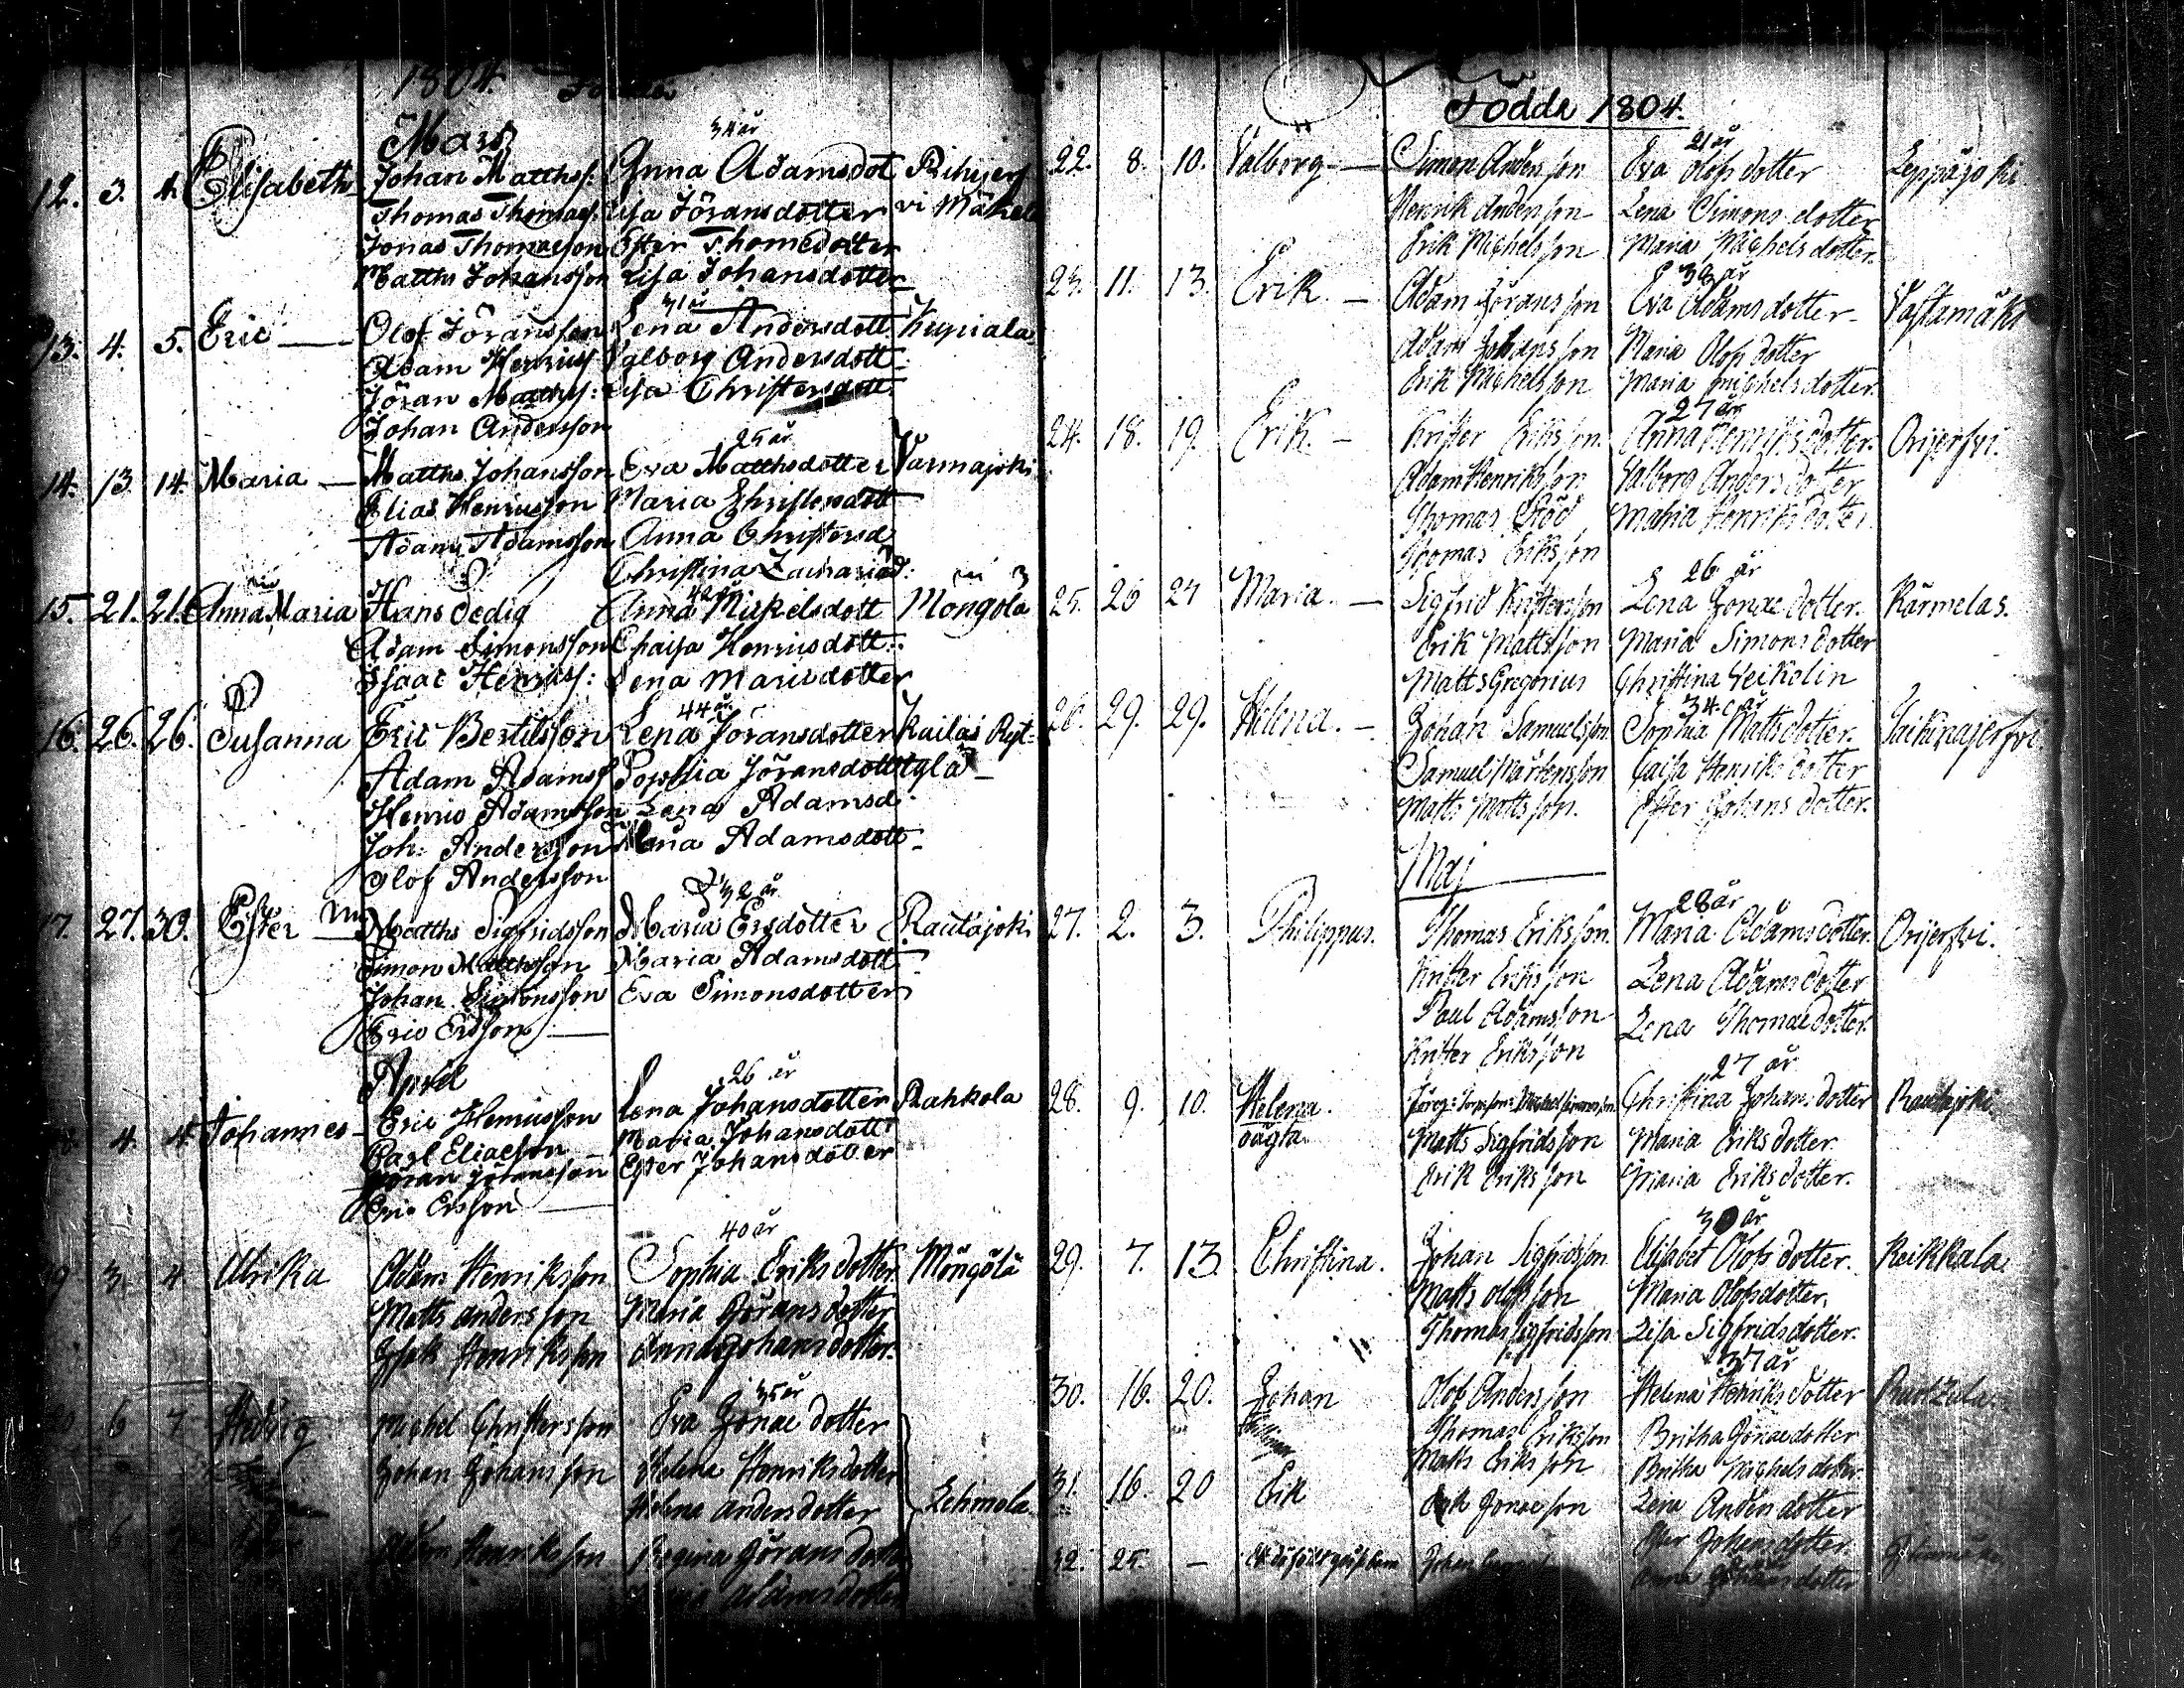 1804. Födda
Mars
34 år
12. 3. 4. Elisabeth Johan Matthss: Anna Adamsdot
Thomas Thomaes: Lisa Jöransdotter vi Mäkelä
Jonas Thomaesson Ester Thomedotter
Matths Johansson Lisa Johansdotter
31 år
13. 4. 5. Eric — Olof Jöransson Lena Andersdott. Kupiala
Adam Henricss: Valborg Andersdott.
Jöran Matthss: Lisa Christersdott.
Johan Andersson
25 år
14. 13. 14. Maria — Matths Johansson Eva Matthsdotter Varmajoki
Elias Henricsson Maria Christersdott
Adam Adamsson Anna Christersd
Christina Zachariæd:
42 år
15. 21. 21. Anna Maria Hans Dedig Anna Mickelsdott Mongola
Adam Simonsson Chaisa Henricsdott:
Isaac Henricss: Lena Maricsdotter
44 år
16. 26. 26. Susanna Eric Bertilsson Lena Jöransdotter Kailas Ryt-
Adam Adamss Sophia Jöransdott tylä
Henric Adamsson Lena Adamsd.
Joh: Andersson Maria Adamsdott
Olof Andersson
32 år
17. 27. 30. Ester — Matths Sigfridsson Maria Ersdotter Rautajoki
Simon Matthsson Maria Adamsdott
Johan Simonsson Eva Simonsdotter
Eric Ersson —
April
26 år
4. 4. Johannes — Eric Henricsson Lena Johansdotter Rahkola
Carl Eliæsson Maria Johansdott
Jöran Jöransson Ester Johansdotter
Eric Ersson —
40 år
19 3. 4. Ulrika Adam Henriksson Sophia Eriksdotter Möngölä
Matts Andersson Maria Göransdotter
Isak Henriksson Anna Johansdotter.
35 år
6 7 Hedvig Michel Christersson Eva Jonae dotter
Johan Johansson Helena Henriksdotter
Helena Andersdotter Lehmola
6 Adam Henriksson Regina Göransdotter
Adamsdotter
Födde 1804.
21 år
22. 8. 10. Valborg — Simon Andersson Eva Olofsdotter Leppäjoki
Henrik Andersson Lena Simonsdotter
Erik Michelsson Maria Michelsdotter.
38 år
23. 11. 13. Erik. — Adam Göransson Eva Adamsdotter Vastamäki
Adam Johansson Maria Olofsdotter
Erik Michelsson Maria Michelsdotter.
27 år
24. 18. 19. Erik. — Krister Eriksson. Anna Henriksdotter. Orijerfvi.
Adam Henriksson Valborg Andersdotter
Thomas Röd Maria Henriksdotter.
Thomas Eriksson
26 år
25. 26 27 Maria. — Sigfrid Kristersson Lena Jonae dotter. Kärmelas.
Erik Mattsson Maria Simonsdotter
Matts Gregorius Christina Veikolin
34 år
26. 29. 29. Helena. — Johan Samuelsson Sophia Mattsdotter.
Samuel Mårtensson Caisa Henriksdotter
Matts Mattsson. Ester Johansdotter.
Maj
28 år
27. 2. 3. Philippus. Thomas Eriksson. Maria Adamsdotter. Orijerfvi.
Krister Eriksson Lena Adamsdotter
Paul Adamsson Lena Thomae dotter.
Krister Eriksson
27 år
28. 9. 10. Helena. Christina Johansdotter Rautajoki.
oägta. Matts Sigfridsson Maria Eriksdotter.
Erik Eriksson Maria Eriksdotter.
30 år
29. 7. 13 Christina. Johan Sigfridsson Elisabet Olofsdotter. Reikkala.
Matts Olofsson Maria Olofsdotter.
Thomas Sigfridsson Lisa Sigfridsdotter.
37 år
30. 16. 20. Johan Olof Andersson Helena Henriksdotter
Thomas Eriksson Britha Jonae dotter
Matts Eriksson Britha Michelsdotter
31. 16. 20 Erik Erik Jonaesson Lena Andersdotter
Ester Johansdotter.
32. 25. — Johan Anna Johansdotter